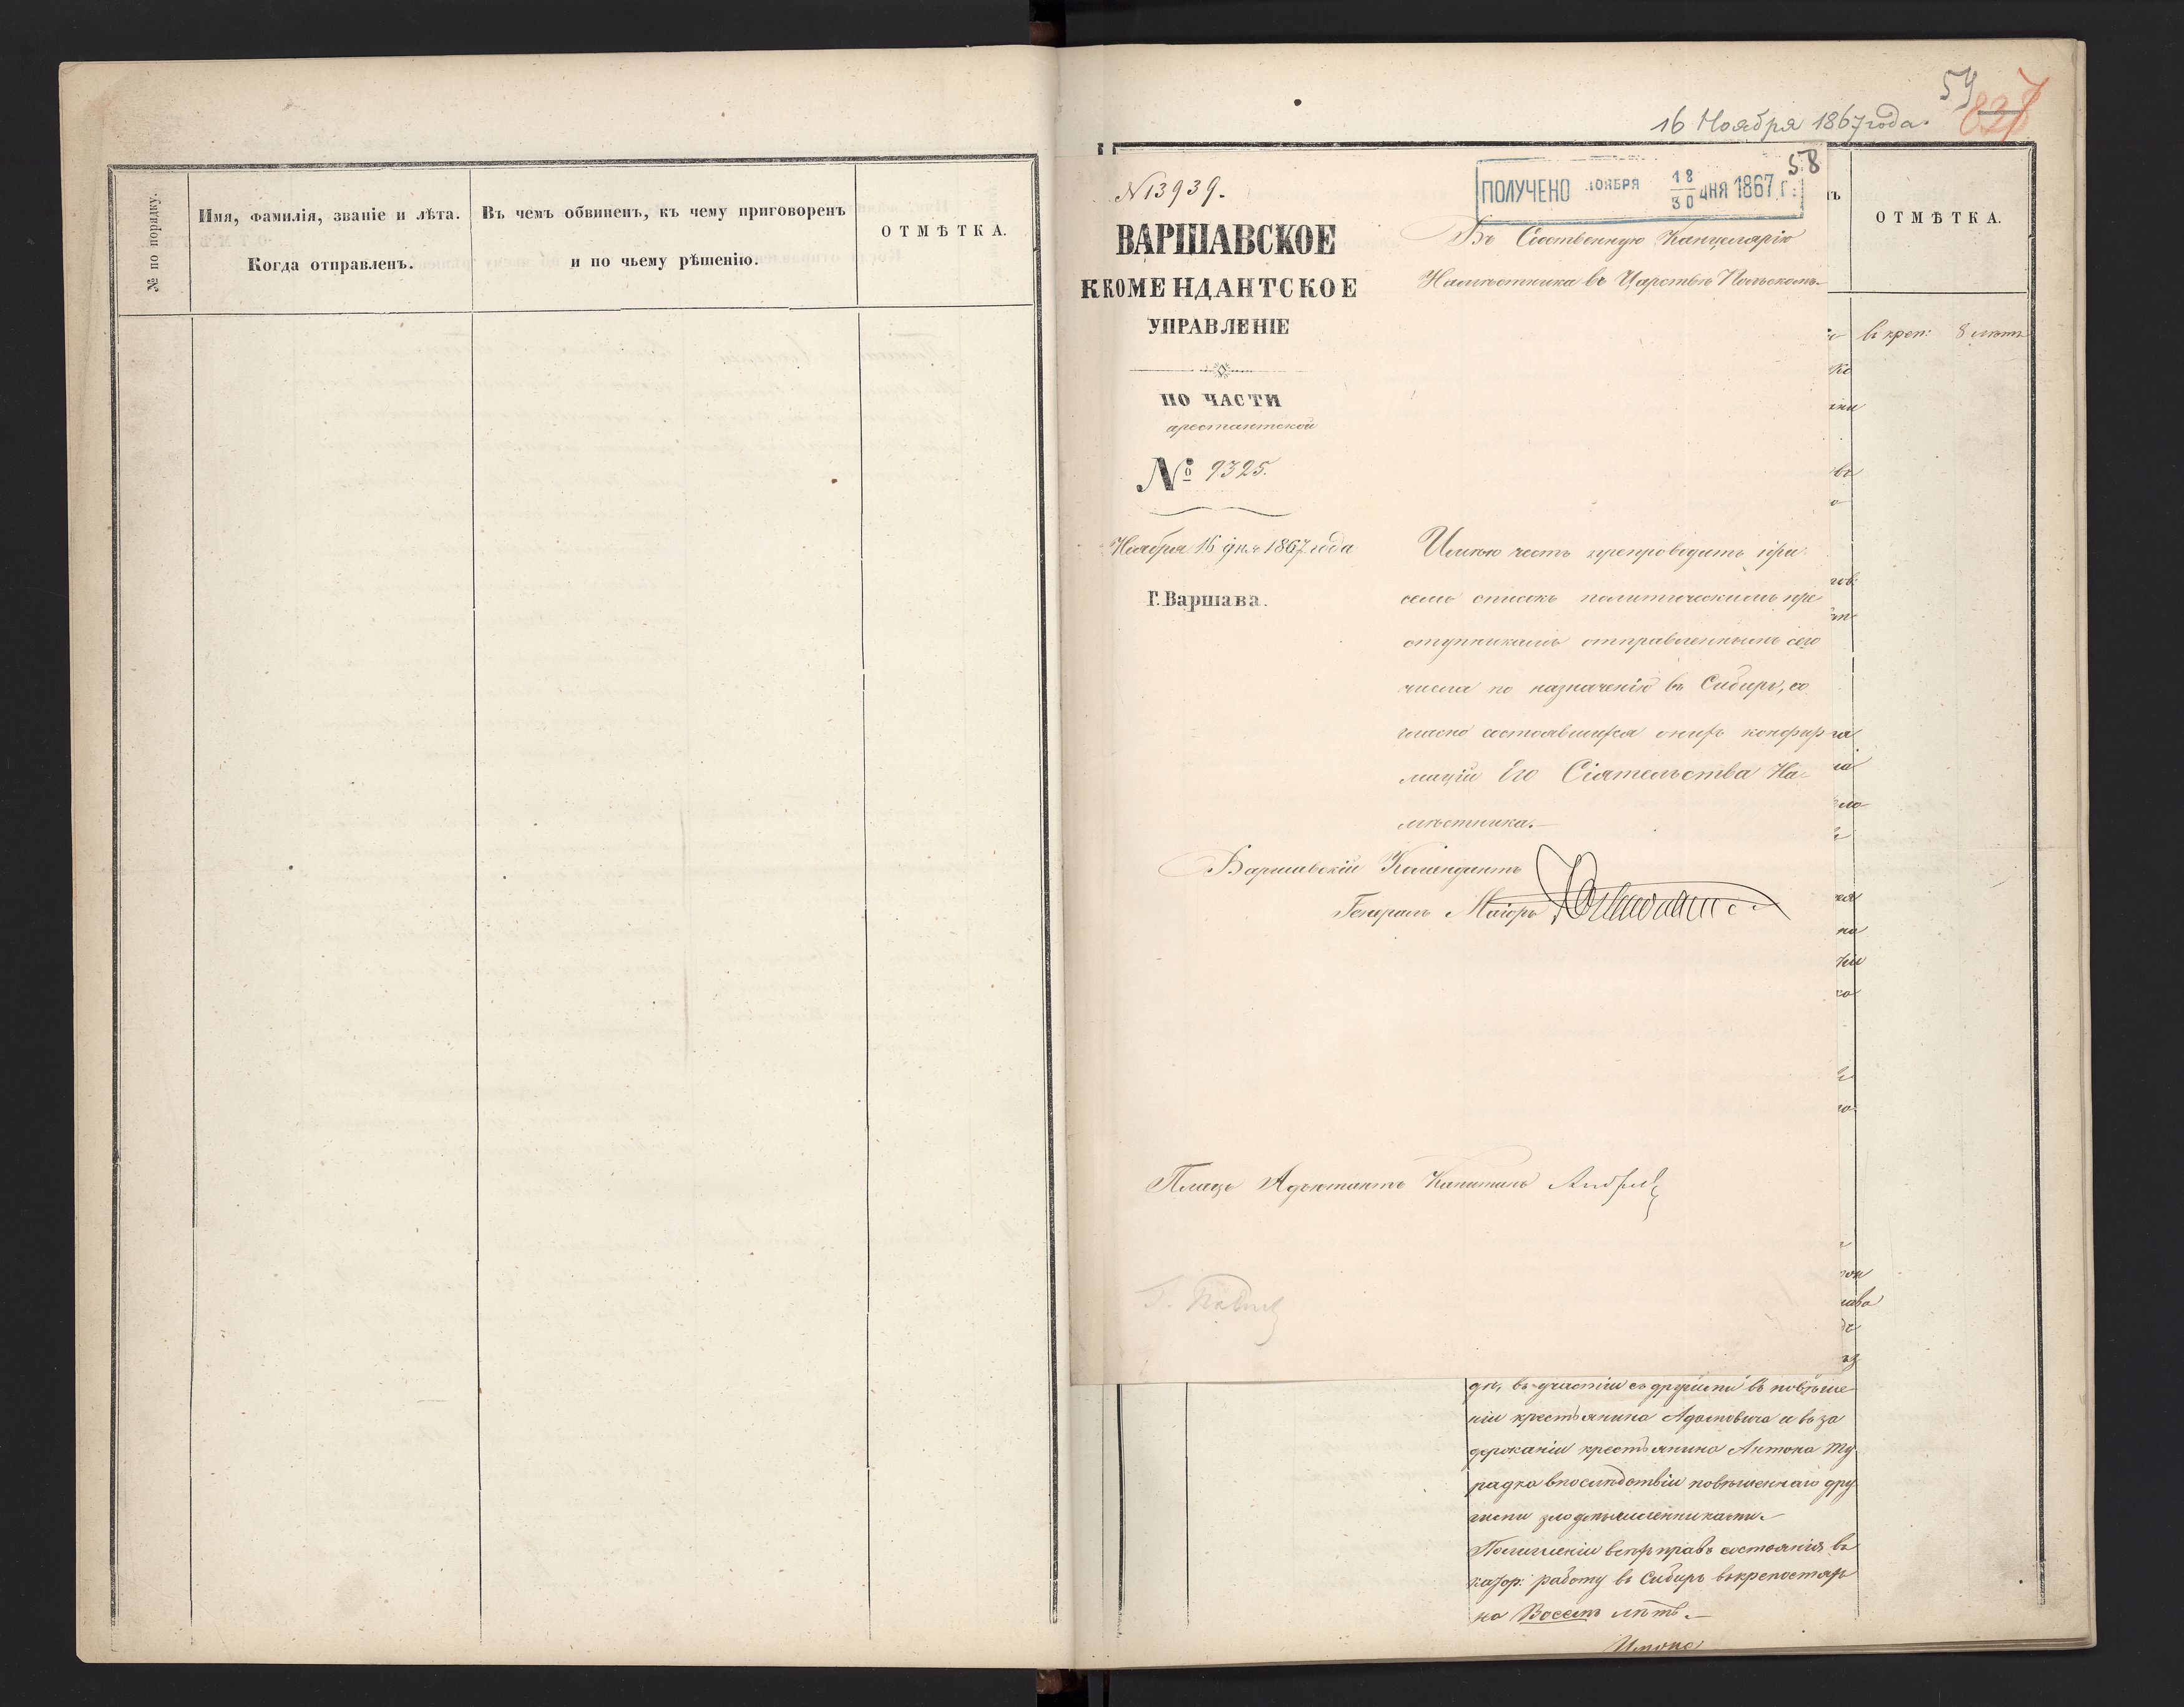 № по порядку.
Имя, фамилія, званіе и лѣта.
Когда отправленъ.
Въ чемъ обвиненъ, къ чему приговоренъ
и по чьему рѣшенію.
ОТМѢТКА.
59
827
16 Ноября 1867 года.
58
ПОЛУЧЕНО НОЯБРЯ 18/30 ДНЯ 1867 Г.
N 13939.
ВАРШАВСКОЕ
ККОМЕНДАНТСКОЕ
УПРАВЛЕНІЕ
ПО ЧАСТИ
арестантской
№ 9325.
Ноября 16 дня 1867 года
Г. Варшава.
Въ Собственную Канцелярію
Намѣстника въ Царствѣ Польскомъ
Имѣю честь препроводить при
семъ списокъ политическимъ пре
ступникамъ отправленнымъ сего
числа по назначенію въ Сибирь, со
гласно состоявшихся о нихъ конфир
мацій Его Сіятельства На-
мѣстника.
Варшавскій Комендантъ
Генералъ Маіоръ
Плацъ Адъютантъ Капитанъ
ОТМѢТКА.
въ креп: 8 лѣтъ
дѣ, въ участіи съ другими въ повѣше
ніи крестьянина Адамовича и въ за
держаніи крестьянина Антона Ту
радка впослѣдствіи повѣшеннаго дру
гими злоумышленниками.
По лишеніи всѣхъ правъ состоянія въ
катор: работу въ Сибирь въ крепостяхъ
на Восемь лѣтъ.
Итого